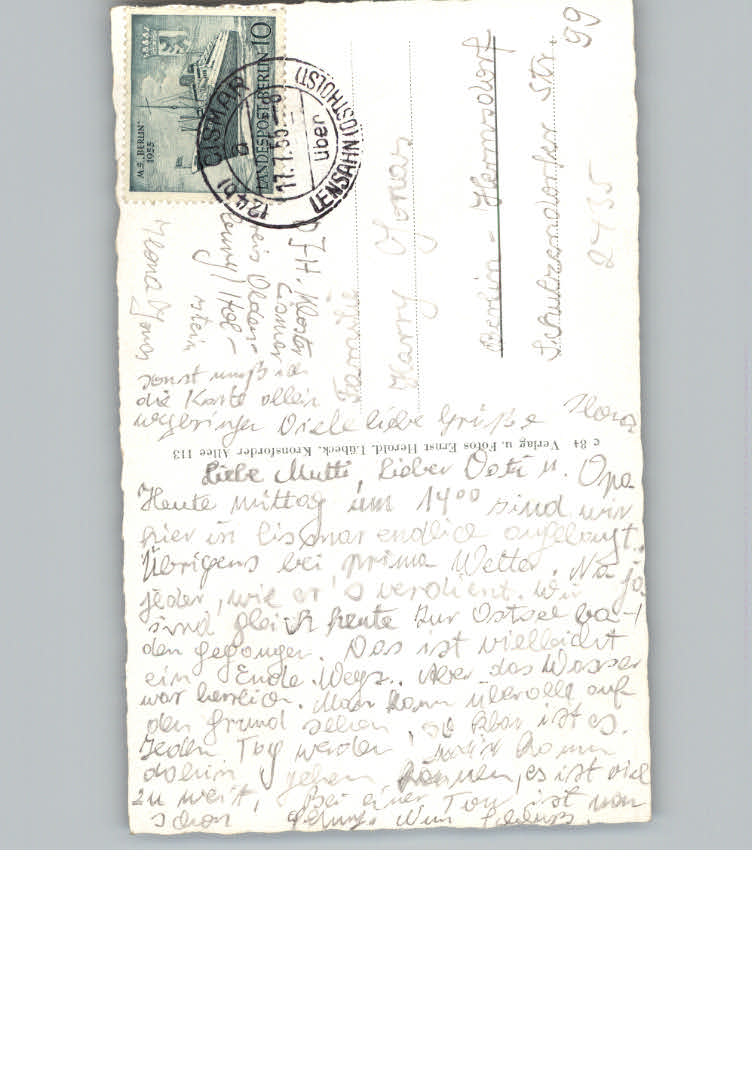 Liebe Mutti, Lieber Vati u. Opa
Heute mittag um 14⁰⁰ sind wir
hier in Cismar endlich angelangt.
Übrigens bei prima Wetter. Na ja
jeder, wie er's verdient. Wir
sind gleich heute zur Ostsee ba-
den gegangen. Das ist vielleicht
ein Ende Wegs. Aber das Wasser
war herrlich. Man kann überall auf
den Grund sehen, so klar ist es.
Jeden Tag werden wir kaum
dahin gehen können, es ist viel
zu weit. Bei einer Tour ist man
schon Nun Schluß.
sonst muß ich
die Karte allein
wegbringen Viele liebe Grüße Ilona
Ilona Jonas
D J H. Kloster
Cismar
Kreis Olden-
burg / Hol-
stein
Familie
Harry Jonas
Berlin - Hermsdorf
Schulzendorfer Str.
99
2435
c 84 Verlag u. Fotos Ernst Herold, Lübeck, Kronsforder Allee 113
M.S. „BERLIN"
1955
LANDESPOST BERLIN 10
(24b) CISMAR
über
LENSAHN (OSTHOLST)